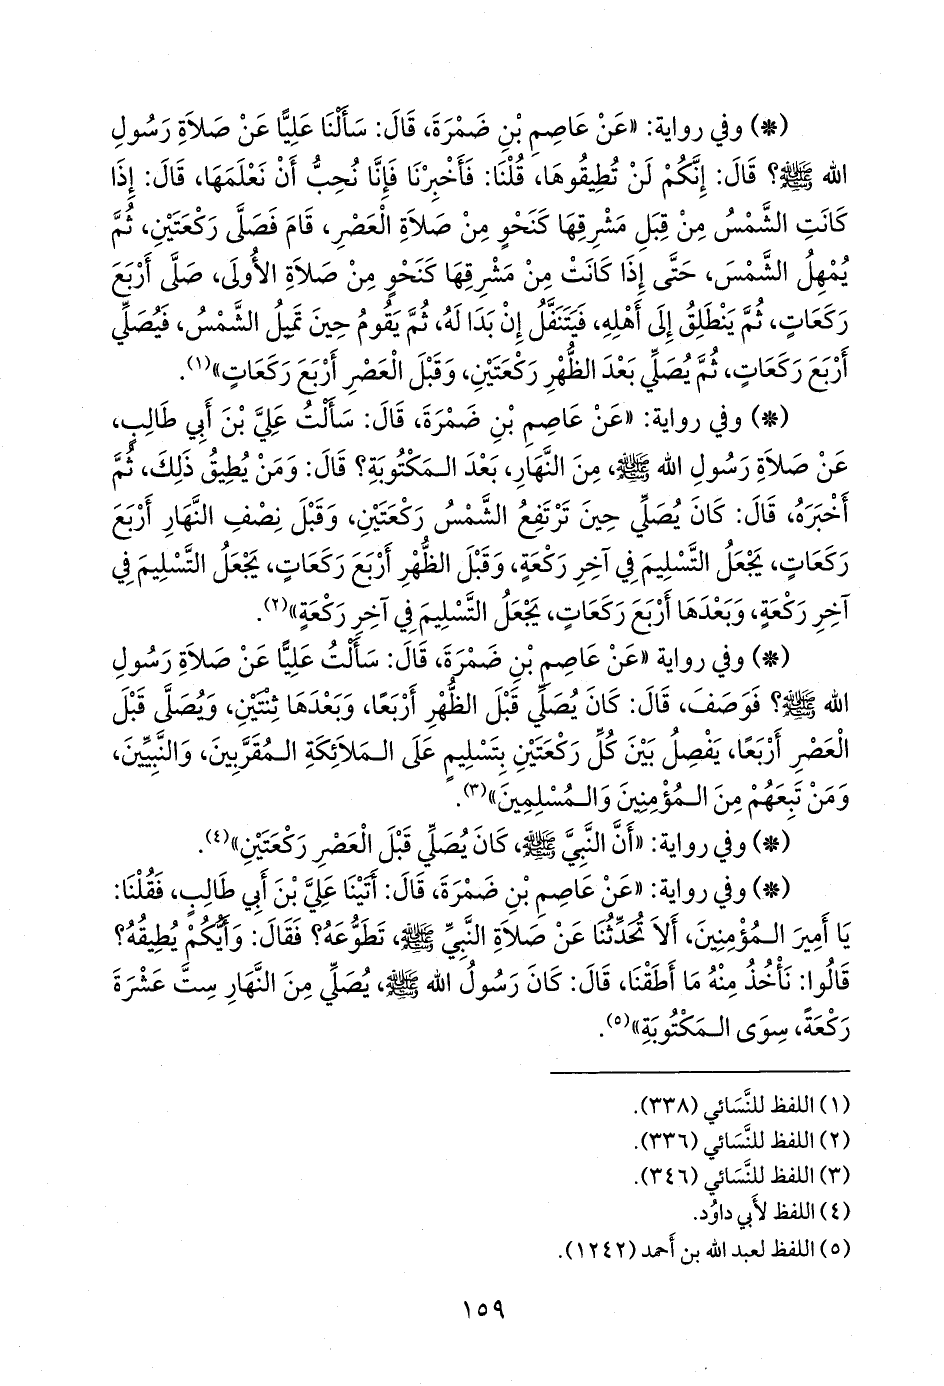 (*) وفي رواية: «عَنْ عَاصِمِ بْنِ ضَمْرَةَ، قَالَ: سَأَلْنَا عَلِيًّا عَنْ صَلاَةِ رَسُولِ
الله ﷺ؟ قَالَ: إِنَّكُمْ لَنْ تُطِيقُوهَا، قُلْنَا: فَأَخْبِرْنَا فَإِنَّا نُحِبُّ أَنْ نَعْلَمَهَا، قَالَ: إِذَا
كَانَتِ الشَّمْسُ مِنْ قِبَلِ مَشْرِقِهَا كَنَحْوٍ مِنْ صَلاَةِ الْعَصْرِ، قَامَ فَصَلَّى رَكْعَتَيْنِ، ثُمَّ
يُمْهِلُ الشَّمْسَ، حَتَّى إِذَا كَانَتْ مِنْ مَشْرِقِهَا كَنَحْوٍ مِنْ صَلاَةِ الأُولَى، صَلَّى أَرْبَعَ
رَكَعَاتٍ، ثُمَّ يَنْطَلِقُ إِلَى أَهْلِهِ، فَيَتَنَفَّلُ إِنْ بَدَا لَهُ، ثُمَّ يَقُومُ حِينَ تَمِيلُ الشَّمْسُ، فَيُصَلِّي
أَرْبَعَ رَكَعَاتٍ، ثُمَّ يُصَلِّي بَعْدَ الظُّهْرِ رَكْعَتَيْنِ، وَقَبْلَ الْعَصْرِ أَرْبَعَ رَكَعَاتٍ»(١).
(*) وفي رواية: «عَنْ عَاصِمِ بْنِ ضَمْرَةَ، قَالَ: سَأَلْتُ عَلِيَّ بْنَ أَبِي طَالِبٍ،
عَنْ صَلاَةِ رَسُولِ الله ﷺ، مِنَ النَّهَارِ، بَعْدَ الـمَكْتُوبَةِ؟ قَالَ: وَمَنْ يُطِيقُ ذَلِكَ، ثُمَّ
أَخْبَرَهُ، قَالَ: كَانَ يُصَلِّي حِينَ تَرْتَفِعُ الشَّمْسُ رَكْعَتَيْنِ، وَقَبْلَ نِصْفِ النَّهَارِ أَرْبَعَ
رَكَعَاتٍ، يَجْعَلُ التَّسْلِيمَ فِي آخِرِ رَكْعَةٍ، وَقَبْلَ الظُّهْرِ أَرْبَعَ رَكَعَاتٍ، يَجْعَلُ التَّسْلِيمَ فِي
آخِرِ رَكْعَةٍ، وَبَعْدَهَا أَرْبَعَ رَكَعَاتٍ، يَجْعَلُ التَّسْلِيمَ فِي آخِرِ رَكْعَةٍ»(٢).
(*) وفي رواية «عَنْ عَاصِمِ بْنِ ضَمْرَةَ، قَالَ: سَأَلْتُ عَلِيًّا عَنْ صَلاَةِ رَسُولِ
الله ﷺ؟ فَوَصَفَ، قَالَ: كَانَ يُصَلِّي قَبْلَ الظُّهْرِ أَرْبَعًا، وَبَعْدَهَا ثِنْتَيْنِ، وَيُصَلَّي قَبْلَ
الْعَصْرِ أَرْبَعًا، يَفْصِلُ بَيْنَ كُلِّ رَكْعَتَيْنِ بِتَسْلِيمٍ عَلَى الـمَلاَئِكَةِ الـمُقَرَّبِينَ، وَالنَّبِيِّينَ،
وَمَنْ تَبِعَهُمْ مِنَ الـمُؤْمِنِينَ وَالـمُسْلِمِينَ»(٣).
(*) وفي رواية: «أَنَّ النَّبِيَّ ﷺ، كَانَ يُصَلِّي قَبْلَ الْعَصْرِ رَكْعَتَيْنِ»(٤).
(*) وفي رواية: «عَنْ عَاصِمِ بْنِ ضَمْرَةَ، قَالَ: أَتَيْنَا عَلِيَّ بْنَ أَبِي طَالِبٍ، فَقُلْنَا:
يَا أَمِيرَ الـمُؤْمِنِينَ، أَلاَ تُحَدِّثُنَا عَنْ صَلاَةِ النَّبِيِّ ﷺ، تَطَوُّعَهُ؟ فَقَالَ: وَأَيُّكُمْ يُطِيقُهُ؟
قَالُوا: نَأْخُذُ مِنْهُ مَا أَطَقْنَا، قَالَ: كَانَ رَسُولُ الله ﷺ، يُصَلِّي مِنَ النَّهَارِ سِتَّ عَشْرَةَ
رَكْعَةً، سِوَى الـمَكْتُوبَةِ»(٥).
(١) اللفظ للنَّسَائي (٣٣٨).
(٢) اللفظ للنَّسَائي (٣٣٦).
(٣) اللفظ للنَّسَائي (٣٤٦).
(٤) اللفظ لأَبي داوُد.
(٥) اللفظ لعبد الله بن أَحمد (١٢٤٢).
١٥٩